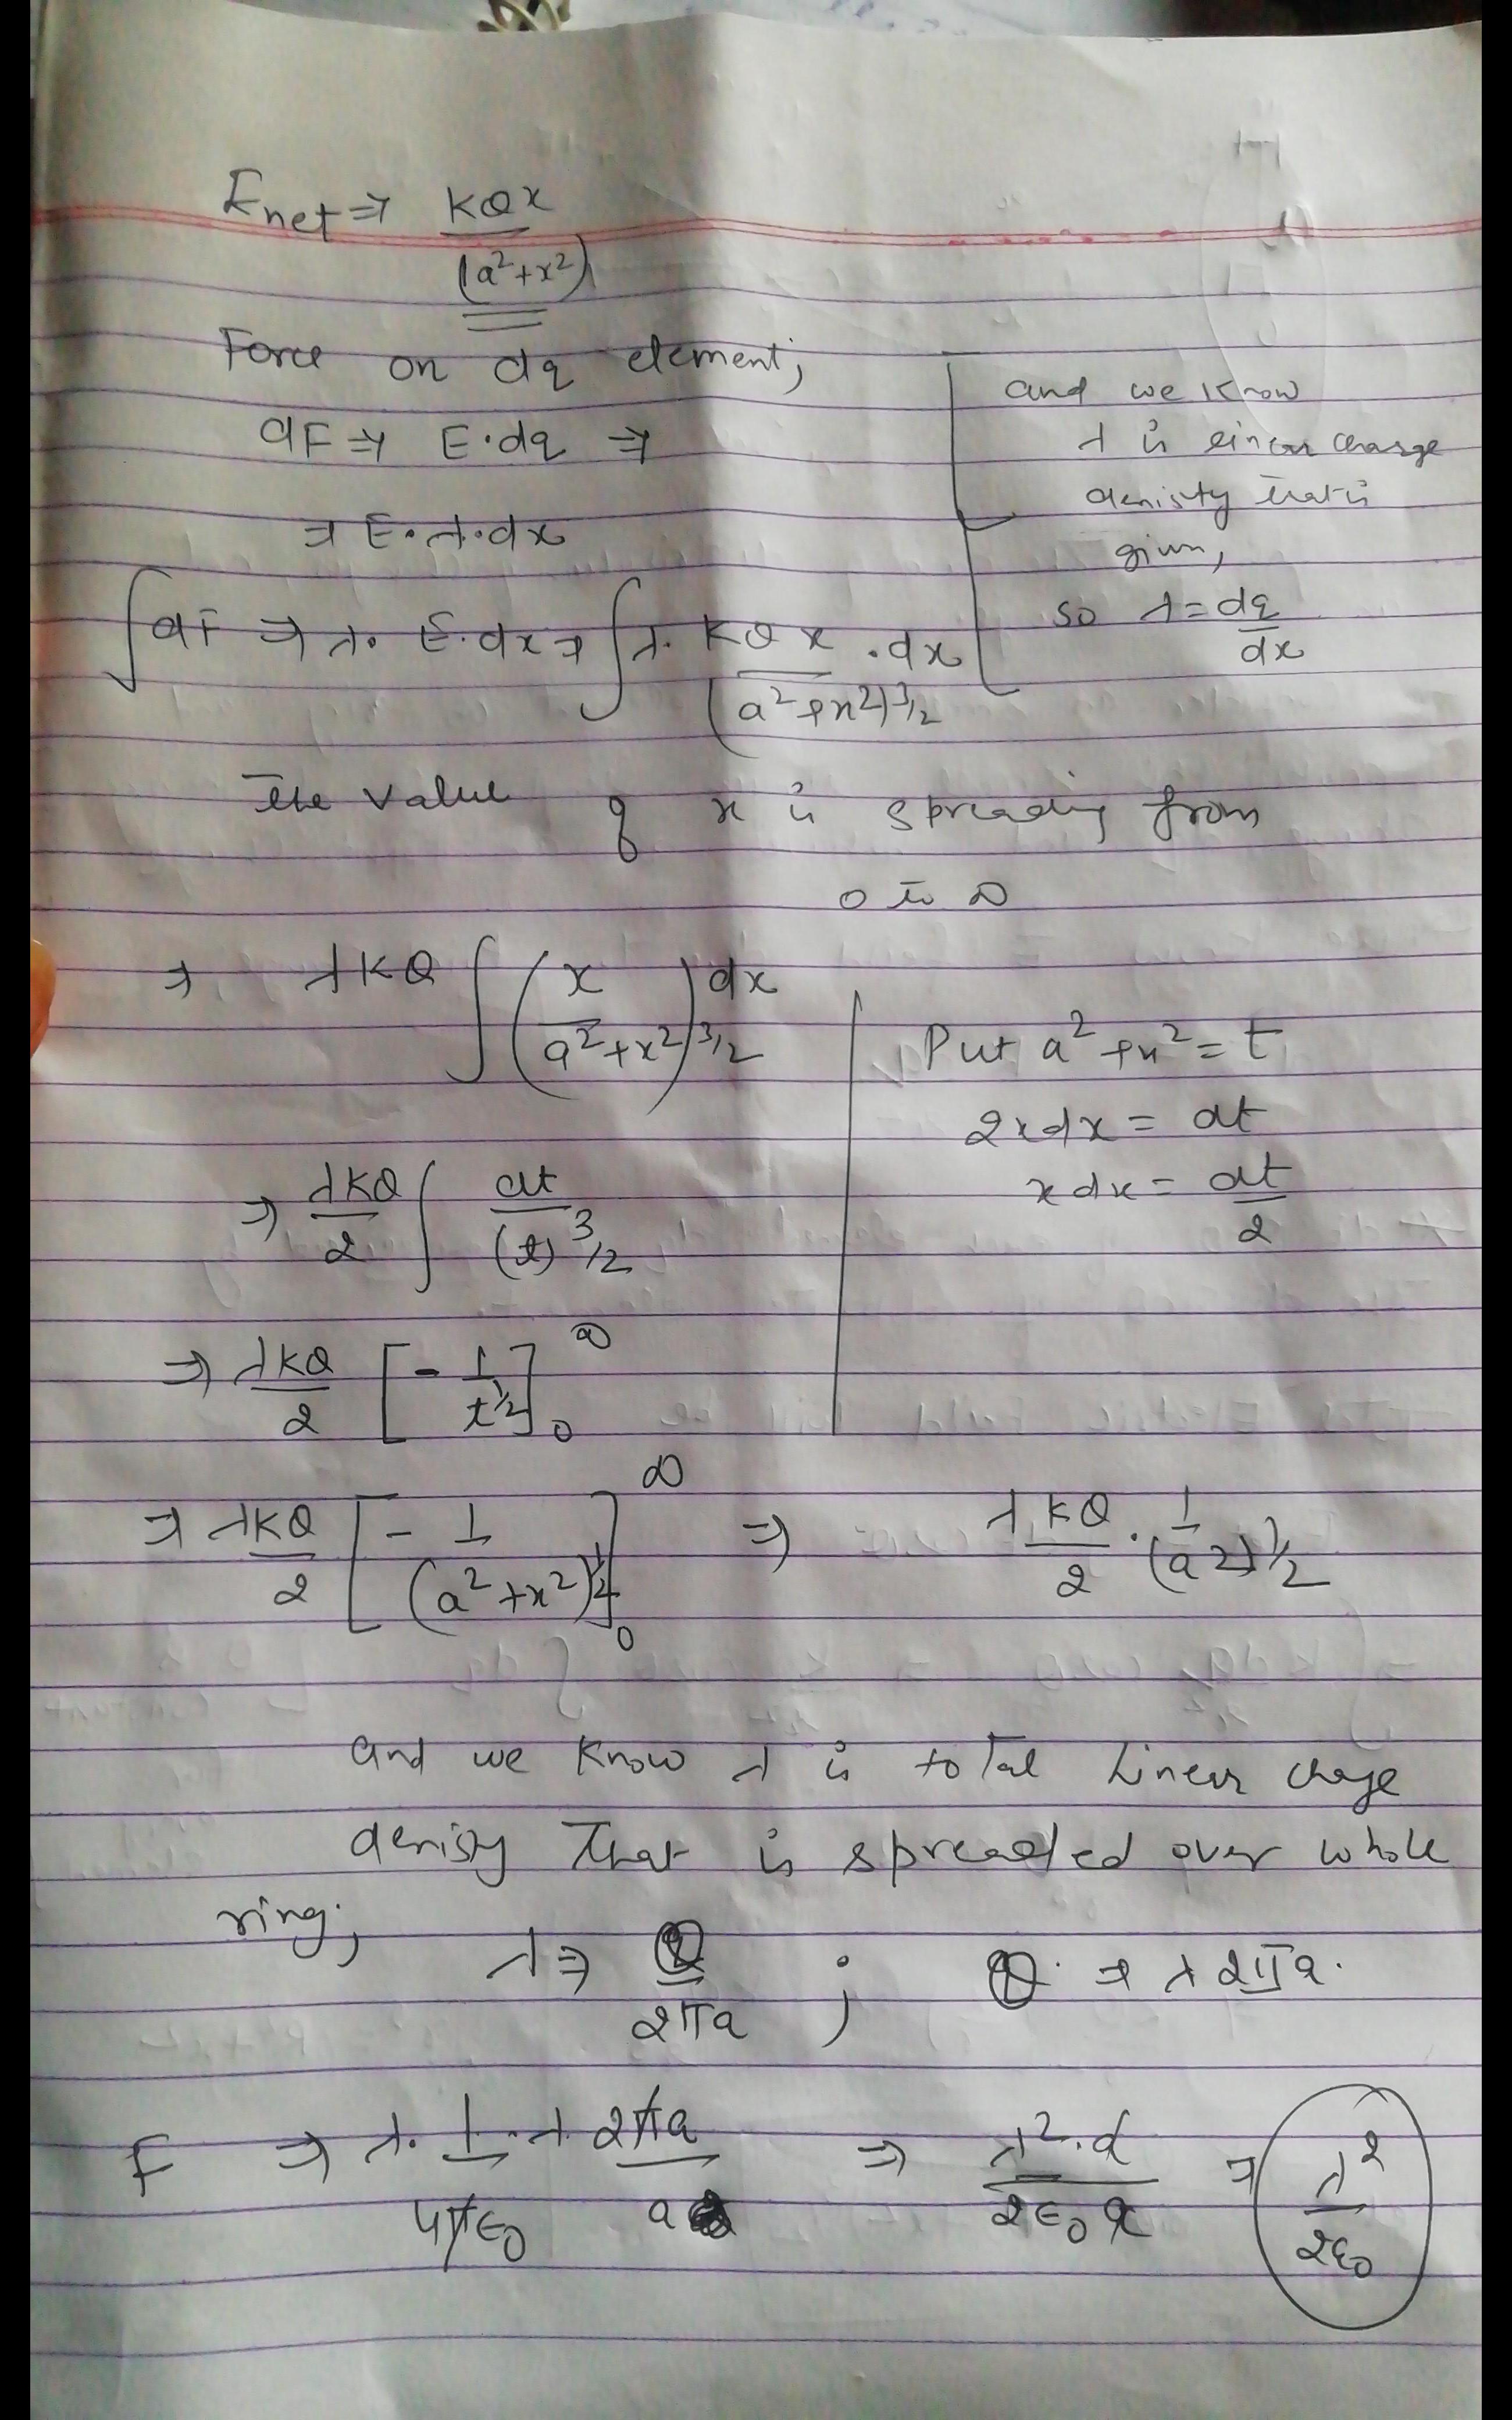 Enet ⇒ KQx
(a²+x²)
Force on dq element;
dF ⇒ E·dq ⇒
⇒ E·λ·dx
and we know
λ is linear charge
denisty that is
given,
so λ = dq
dx
∫dF ⇒ λ· E·dx ⇒ ∫λ· KQx ·dx
(a²+x²)3/2
The value of x is spreading from
0 to ∞
⇒ λKQ ∫ (x / a²+x²)3/2 dx
Put a²+x² = t
2xdx = dt
xdx = dt
2
⇒ λKQ/2 ∫ dt/(t)3/2
⇒ λKQ/2 [- 1/t1/2]0∞
⇒ λKQ/2 [- 1/(a²+x²)1/2]0∞ ⇒ λKQ/2 · 1/(a2)1/2
and we know λ is total Linear charge
denisty That is spreaded over whole
ring;
λ ⇒ Q/2πa ; Q ⇒ λ2πa.
F ⇒ λ· 1/4πε0 · λ 2πa/a ⇒ λ²·a/2ε0a ⇒ λ²/2ε0